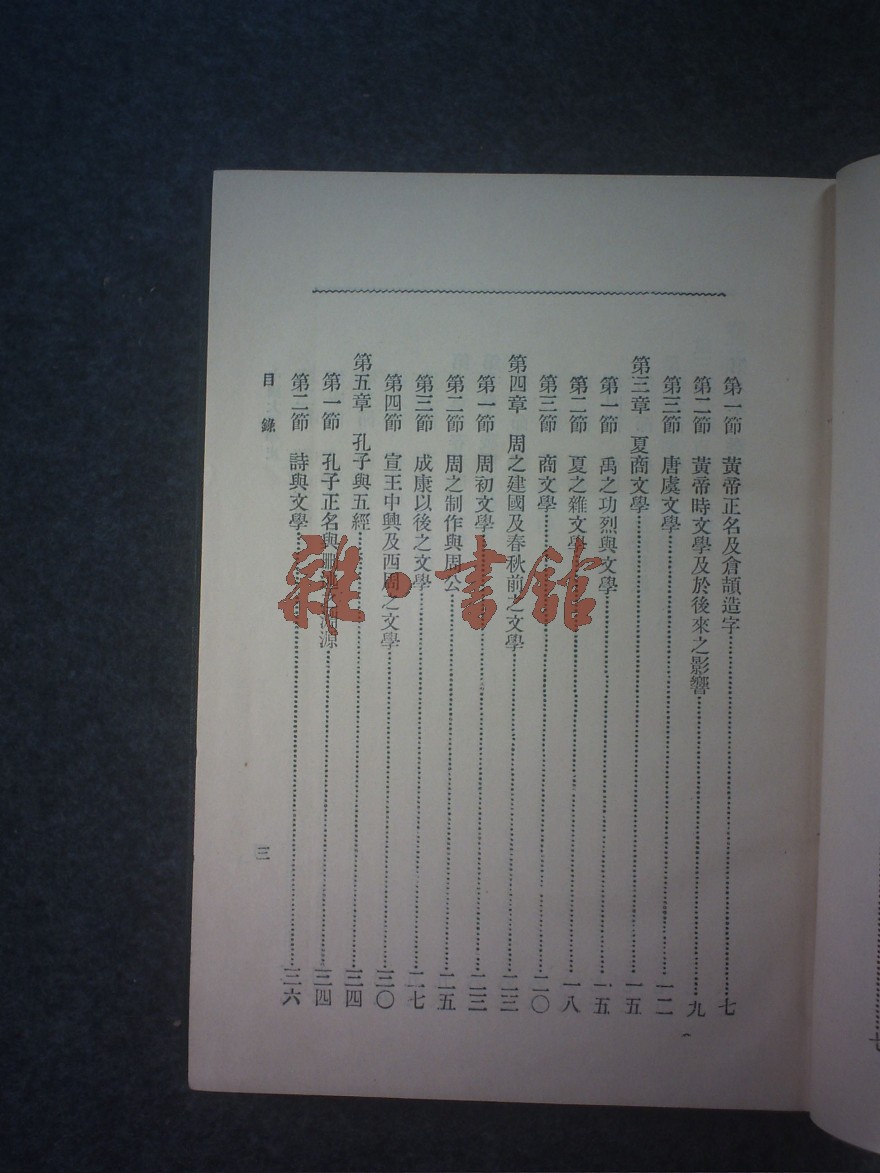 第一節　黃帝正名及倉頡造字……七
第二節　黃帝時文學及於後來之影響……九
第三節　唐虞文學……一二
第三章　夏商文學……一五
第一節　禹之功烈與文學……一五
第二節　夏之雜文學……一八
第三節　商文學……二〇
第四章　周之建國及春秋前之文學……二三
第一節　周初文學……二三
第二節　周之制作與周公……二五
第三節　成康以後之文學……二七
第四節　宣王中興及西周之文學……三〇
第五章　孔子與五經……三四
第一節　孔子正名與刪述之淵源……三四
第二節　詩與文學……三六
目錄
三
七
雜·書館